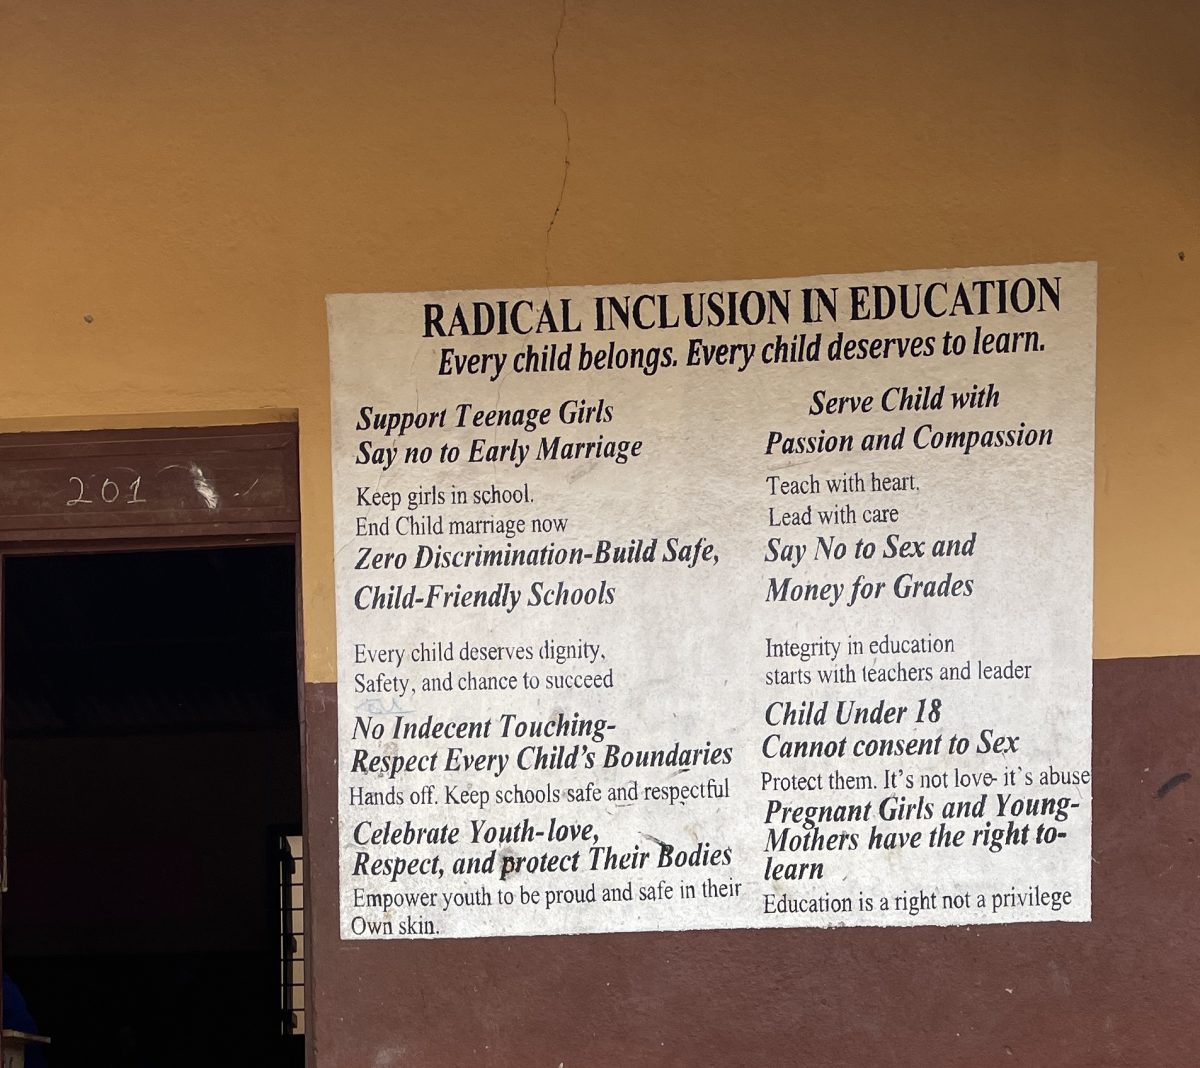 RADICAL INCLUSION IN EDUCATION
Every child belongs. Every child deserves to learn.
Support Teenage Girls
Say no to Early Marriage
Keep girls in school.
End Child marriage now
Zero Discrimination-Build Safe,
Child-Friendly Schools
Every child deserves dignity,
Safety, and chance to succeed
No Indecent Touching-
Respect Every Child's Boundaries
Hands off. Keep schools safe and respectful
Celebrate Youth-love,
Respect, and protect Their Bodies
Empower youth to be proud and safe in their
Own skin.
Serve Child with
Passion and Compassion
Teach with heart,
Lead with care
Say No to Sex and
Money for Grades
Integrity in education
starts with teachers and leader
Child Under 18
Cannot consent to Sex
Protect them. It's not love- it`s abuse
Pregnant Girls and Young-
Mothers have the right to-
learn
Education is a right not a privilege
201